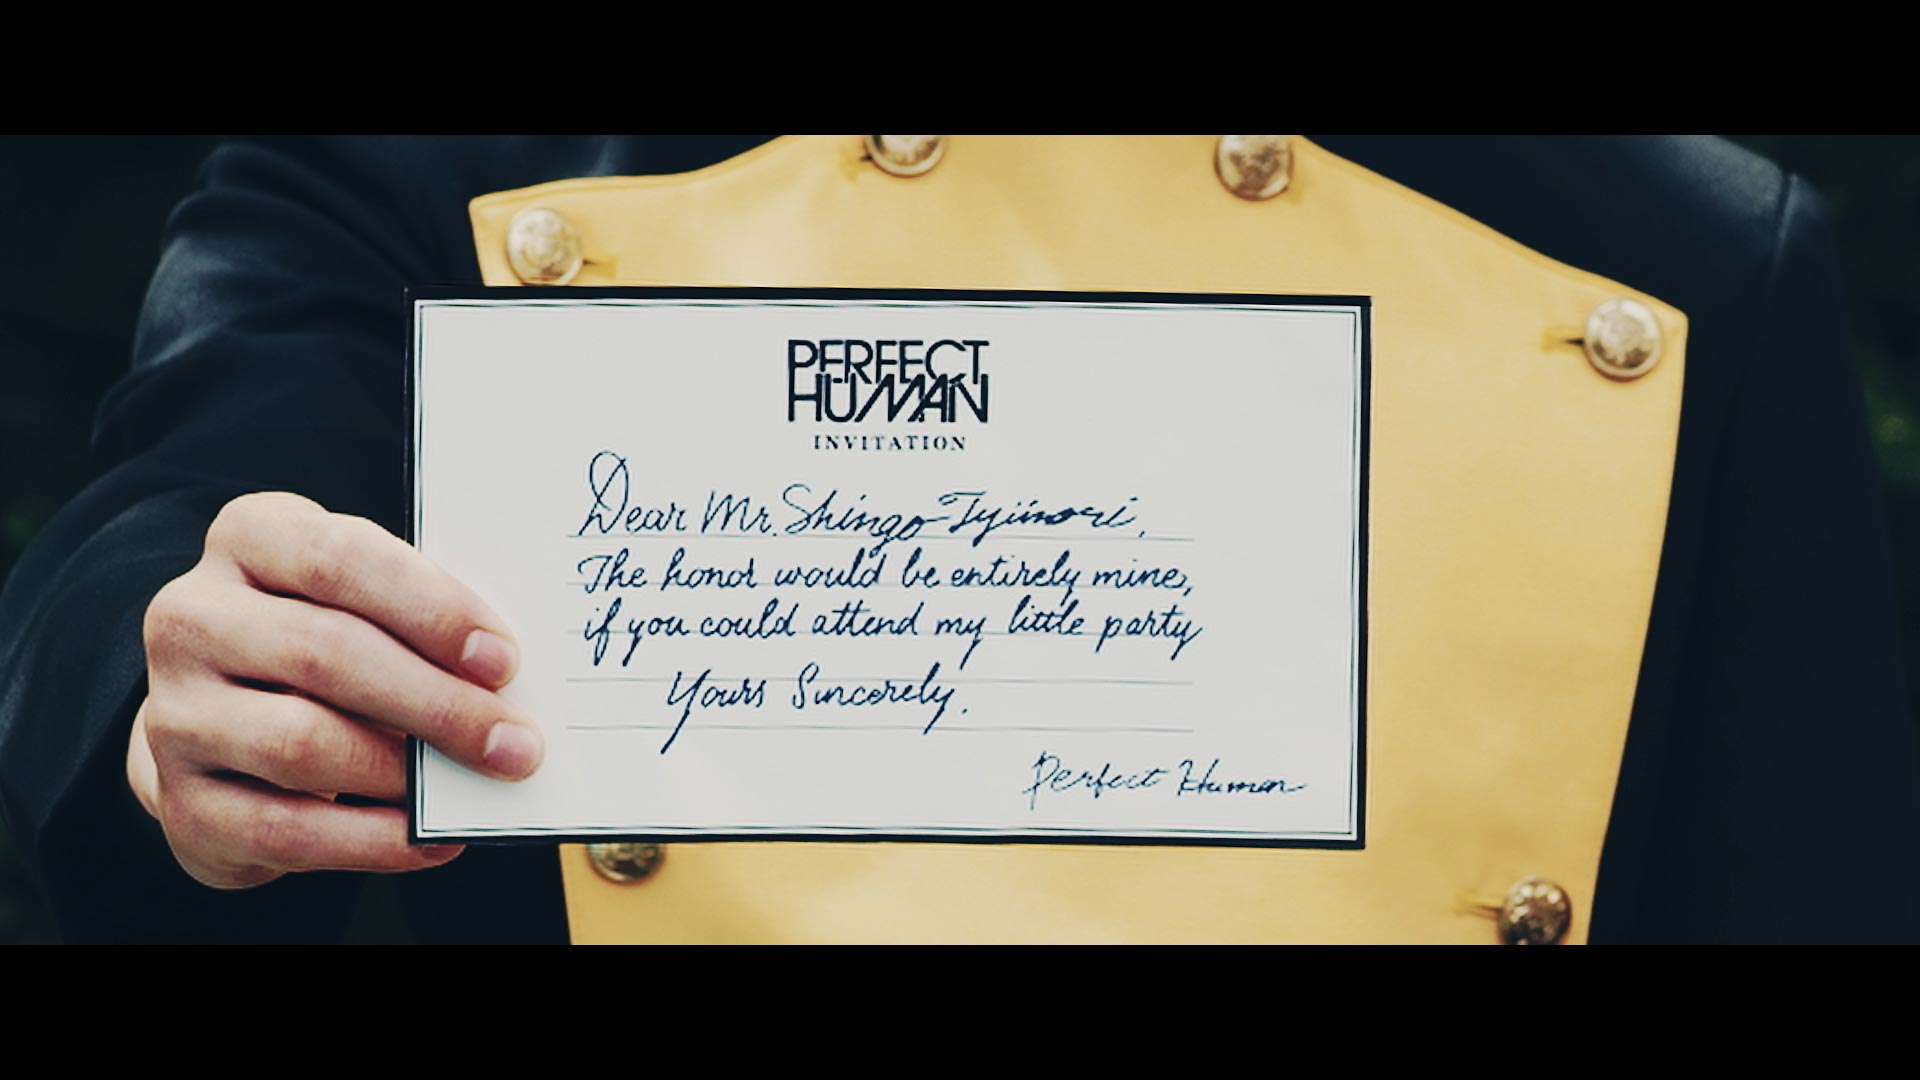 PERFECT
HUMAN
INVITATION
Dear Mr. Shingo
The honor would be entirely mine,
if you could attend my little party
Yours Sincerely.
Perfect Human